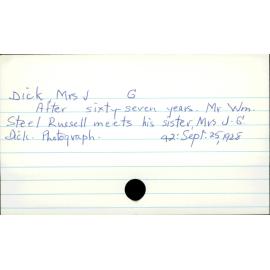 Dick, Mrs J G
After sixty-seven years. Mr Wm.
Steel Russell meets his sister, Mrs J. G
Dick. Photograph. 42: Sept. 25, 1928